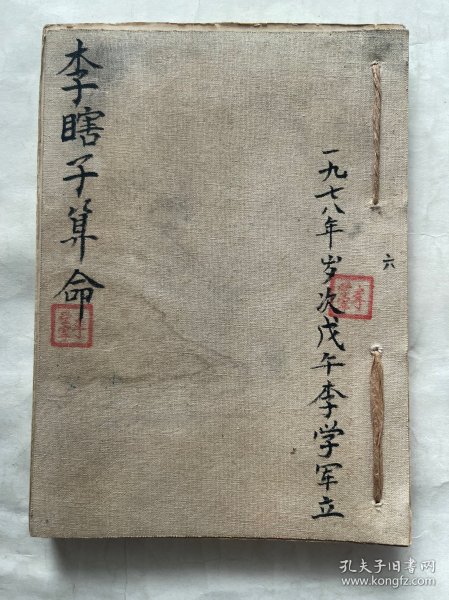 李瞎子算命
一九七八年岁次戊午李学军立
六
孔夫子旧书网
www.kongfz.com